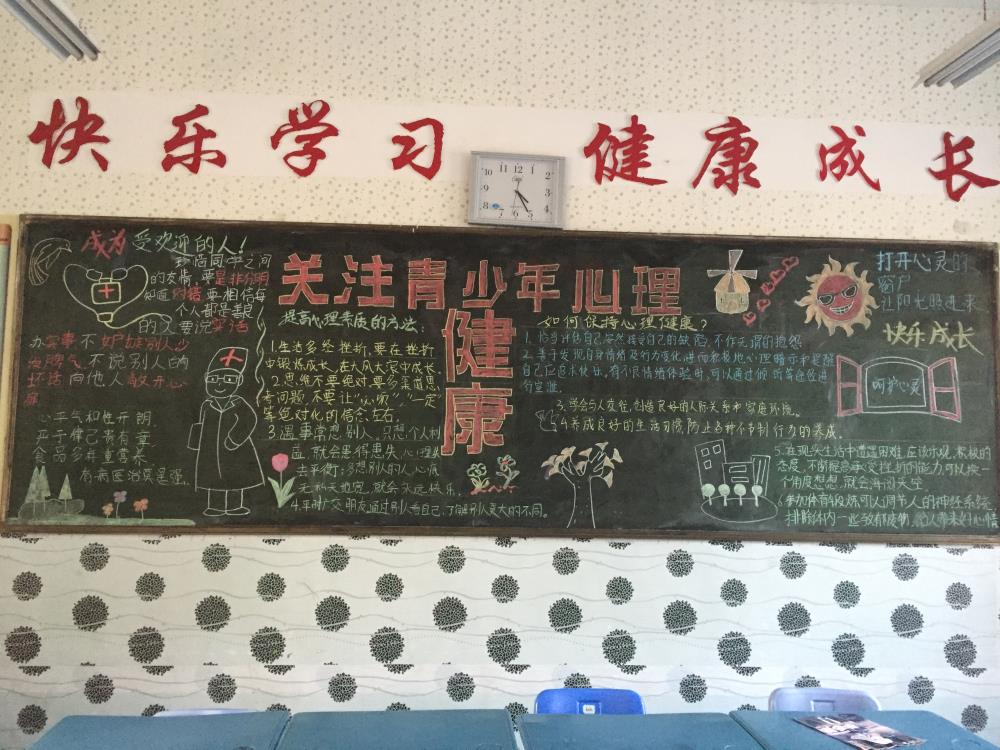 快乐学习 健康成长
成为受欢迎的人!
珍惜同学之间
的友情,要是非分明
知道对错要相信每
个人都是善良
的人要说实话
办实事不妒嫉别人少
发脾气不说别人的
坏话向他人敞开心
扉
心平气和性开朗
严于律己责有章
食品多年重营养
有病医治莫逞强
关注青少年心理
健康
提高心理素质的方法:
1.生活多经挫折,要在挫折
中锻炼成长,在大风大浪中成长.
2.思维不要绝对要多渠道思
考问题,不要让“必须”“一定”
等绝对化的信念左右.
3.遇事常想别人,只想个人利
益,就会患得患失,心理失
去平衡;多想别人的人心底
无私天地宽,就会永远快乐,
4.平时广交朋友通过别人看自己,了解别人更大的不同。
如何保持心理健康?
1.恰当评估自己安然接受自己的缺陷,不作无谓的抱怨
2.善于发现自身情绪及行为变化进而积极地心理暗示和提醒
自己应急求快乐,有不良情绪体验时,可以通过倾听等途径进
行宣泄.
3.学会与人友佳,创造良好的人际关系和家庭环境。
4.养成良好的生活习惯,防止各种不节制行为的养成.
5.在现实生活中遭遇困难,应该乐观,积极的
态度,不断提高承受挫折的能力可以换一
个角度想想,就会海阔天空
6.参加体育锻炼可以调节人的神经系统
排除体内一些致郁废物,给人带来好心情
打开心灵的
窗户
让阳光照进来
快乐成长
呵护心灵
12
1
2
3
4
5
6
7
8
9
10
11